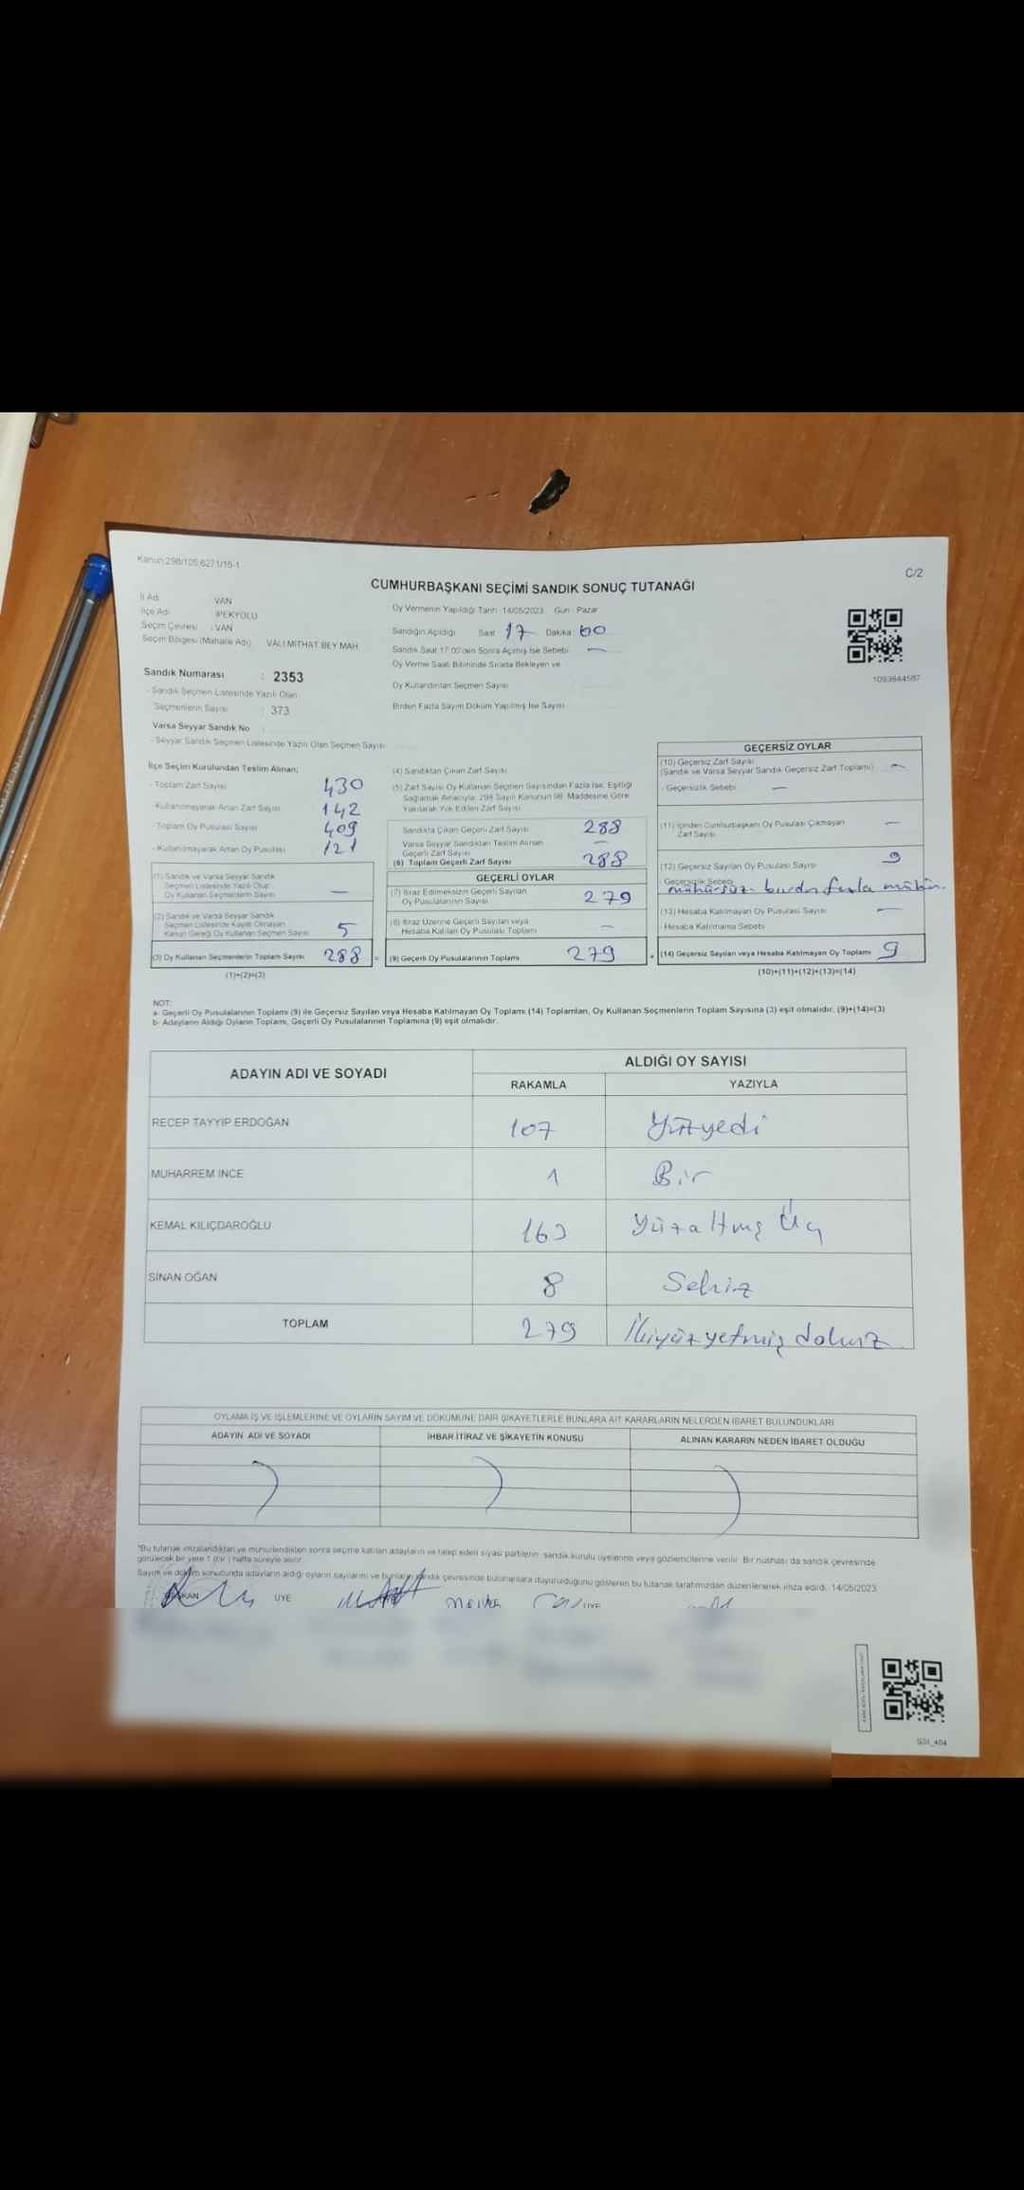 Kanun:298/105,6271/16-1
C/2
CUMHURBAŞKANI SEÇİMİ SANDIK SONUÇ TUTANAĞI
İl Adı : VAN
İlçe Adı : İPEKYOLU
Seçim Çevresi : VAN
Seçim Bölgesi (Mahalle Adı) : VALİ MİTHAT BEY MAH.
Sandık Numarası : 2353
- Sandık Seçmen Listesinde Yazılı Olan
Seçmenlerin Sayısı : 373
Varsa Seyyar Sandık No
- Seyyar Sandık Seçmen Listesinde Yazılı Olan Seçmen Sayısı
Oy Vermenin Yapıldığı Tarih : 14/05/2023 Gün : Pazar
Sandığın Açıldığı Saat 17 Dakika 00
Sandık Saat 17:00'den Sonra Açılmış İse Sebebi —
Oy Verme Saati Bitiminde Sırada Bekleyen ve
Oy Kullandırılan Seçmen Sayısı
Birden Fazla Sayım Döküm Yapılmış İse Sayısı
1093644587
İlçe Seçim Kurulundan Teslim Alınan;
- Toplam Zarf Sayısı 430
- Kullanılmayarak Artan Zarf Sayısı 142
- Toplam Oy Pusulası Sayısı 409
- Kullanılmayarak Artan Oy Pusulası 121
(1) Sandık ve Varsa Seyyar Sandık
Seçmen Listesinde Yazılı Olup
Oy Kullanan Seçmenlerin Sayısı —
(2) Sandık ve Varsa Seyyar Sandık
Seçmen Listesinde Kayıtlı Olmayan
Kanun Gereği Oy Kullanan Seçmen Sayısı 5
(3) Oy Kullanan Seçmenlerin Toplam Sayısı 288
(1)+(2)=(3)
(4) Sandıktan Çıkan Zarf Sayısı
(5) Zarf Sayısı Oy Kullanan Seçmen Sayısından Fazla İse, Eşitliği
Sağlamak Amacıyla, 298 Sayılı Kanunun 98. Maddesine Göre
Yakılarak Yok Edilen Zarf Sayısı
Sandıkta Çıkan Geçerli Zarf Sayısı 288
Varsa Seyyar Sandıktan Teslim Alınan
Geçerli Zarf Sayısı —
(6) Toplam Geçerli Zarf Sayısı 288
GEÇERLİ OYLAR
(7) İtiraz Edilmeksizin Geçerli Sayılan
Oy Pusulalarının Sayısı 279
(8) İtiraz Üzerine Geçerli Sayılan veya
Hesaba Katılan Oy Pusulası Toplamı —
(9) Geçerli Oy Pusulalarının Toplamı 279
GEÇERSİZ OYLAR
(10) Geçersiz Zarf Sayısı
(Sandık ve Varsa Seyyar Sandık Geçersiz Zarf Toplamı) —
- Geçersizlik Sebebi —
(11) İçinden Cumhurbaşkanı Oy Pusulası Çıkmayan
Zarf Sayısı —
(12) Geçersiz Sayılan Oy Pusulası Sayısı 9
Geçersizlik Sebebi
mühürsüz. birden fazla mühür.
(13) Hesaba Katılmayan Oy Pusulası Sayısı —
- Hesaba Katılmama Sebebi
(14) Geçersiz Sayılan veya Hesaba Katılmayan Oy Toplamı 9
(10)+(11)+(12)+(13)=(14)
NOT:
a- Geçerli Oy Pusulalarının Toplamı (9) ile Geçersiz Sayılan veya Hesaba Katılmayan Oy Toplamı (14) Toplamları, Oy Kullanan Seçmenlerin Toplam Sayısına (3) eşit olmalıdır. (9)+(14)=(3)
b- Adayların Aldığı Oyların Toplamı, Geçerli Oy Pusulalarının Toplamına (9) eşit olmalıdır.
ADAYIN ADI VE SOYADI ALDIĞI OY SAYISI
RAKAMLA YAZIYLA
RECEP TAYYİP ERDOĞAN 107 Yüzyedi
MUHARREM İNCE 1 Bir
KEMAL KILIÇDAROĞLU 163 Yüzaltmış Üç
SİNAN OĞAN 8 Sekiz
TOPLAM 279 İkiyüzyetmiş dokuz
OYLAMA İŞ VE İŞLEMLERİNE VE OYLARIN SAYIM VE DÖKÜMÜNE DAİR ŞİKAYETLERLE BUNLARA AİT KARARLARIN NELERDEN İBARET BULUNDUKLARI
ADAYIN ADI VE SOYADI İHBAR İTİRAZ VE ŞİKAYETİN KONUSU ALINAN KARARIN NEDEN İBARET OLDUĞU
*Bu tutanak imzalandıktan ve mühürlendikten sonra seçime katılan adayların ve talep eden siyasi partilerin sandık kurulu üyelerine veya gözlemcilerine verilir. Bir nüshası da sandık çevresinde
görülecek bir yere 1 (bir) hafta süreyle asılır.
Sayım ve döküm sonucunda adayların aldığı oyların sayılarını ve bunların sandık çevresinde bulunanlara duyurulduğunu gösteren bu tutanak tarafımızdan düzenlenerek imza edildi. 14/05/2023
BAŞKAN ÜYE ÜYE